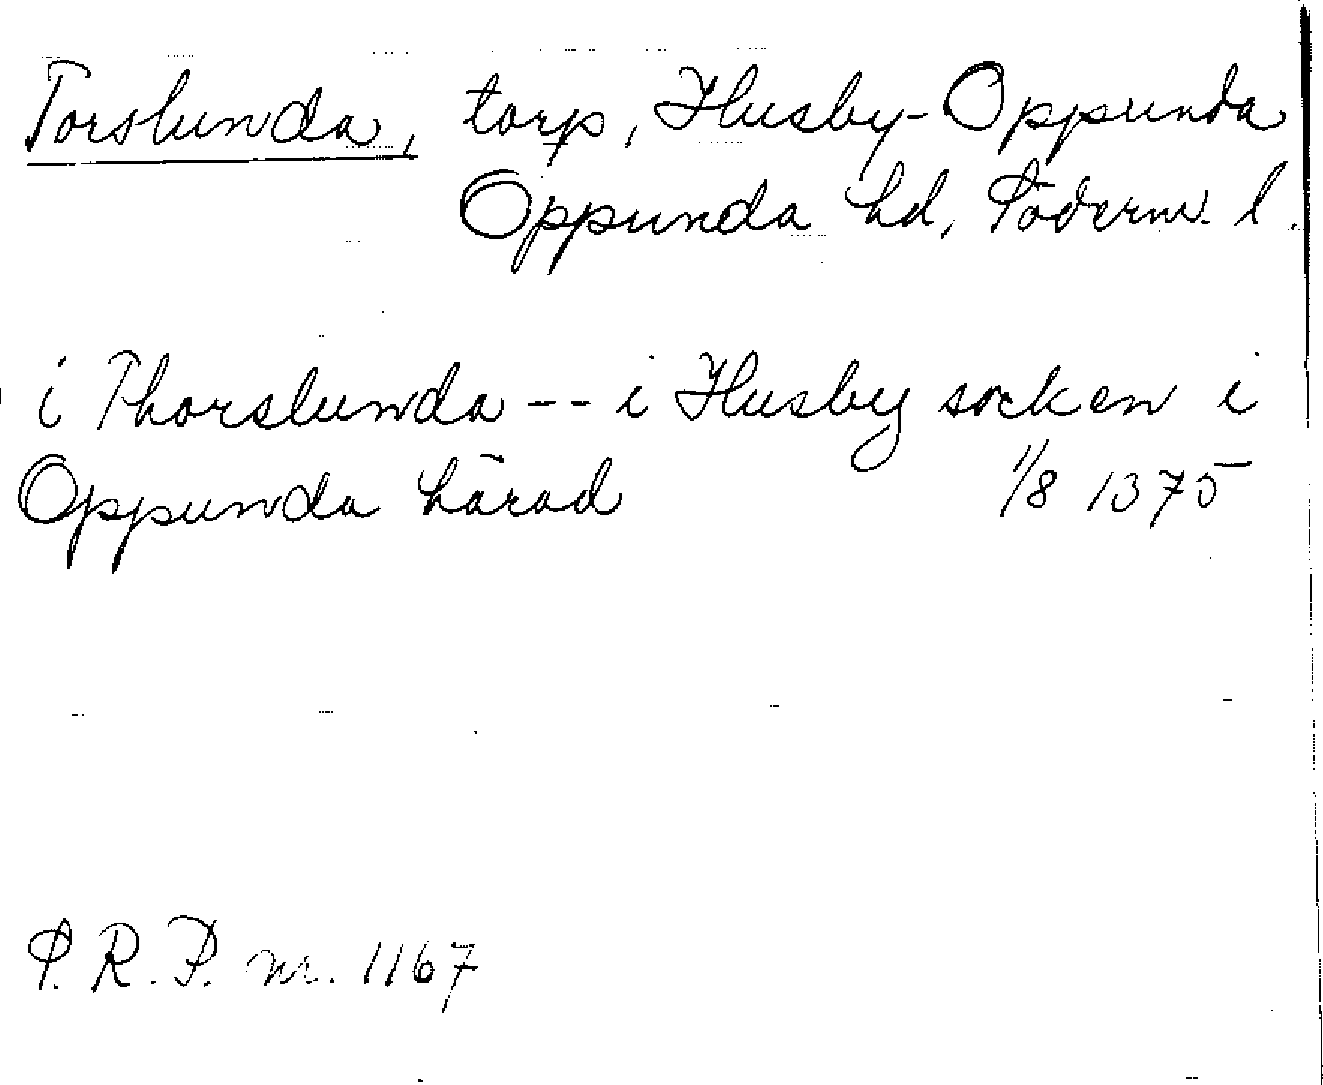 Torslunda, torp, Husby-Oppunda
Oppunda hd, Söderm. l.
i Thorslunda -- i Husby socken i
Oppunda härad 1/8 1375
S. R. P. nr. 1167